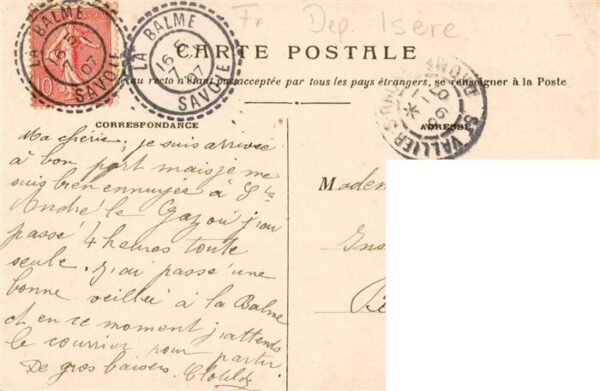 Fr Dep. Isere
LA BALME
16 5
7 07
SAVOIE
10
LA BALME
16 5
7 07
SAVOIE
CARTE POSTALE
au recto n'étant pas acceptée par tous les pays étrangers, se renseigner à la Poste
CORRESPONDANCE
ADRESSE
ST VALLIER
DROME
Ma chérie, je suis arrivée
à bon port mais je me
suis bien ennuyée à St
André le Gaz où j'ai
passé 4 heures toute
seule. J'ai passé une
bonne veillée à la Balme
et en ce moment j'attends
le courrier pour partir.
De gros baisers. Clotilde
Madem
Ins